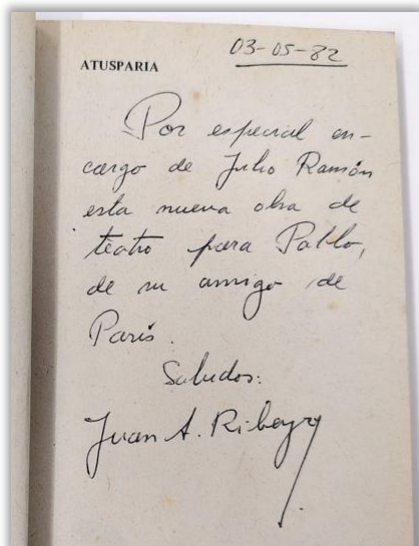 03-05-82
ATUSPARIA
Por especial en-
cargo de Julio Ramón
esta nueva obra de
teatro para Pablo,
de su amigo de
París.
Saludos:
Juan A. Ribeyro